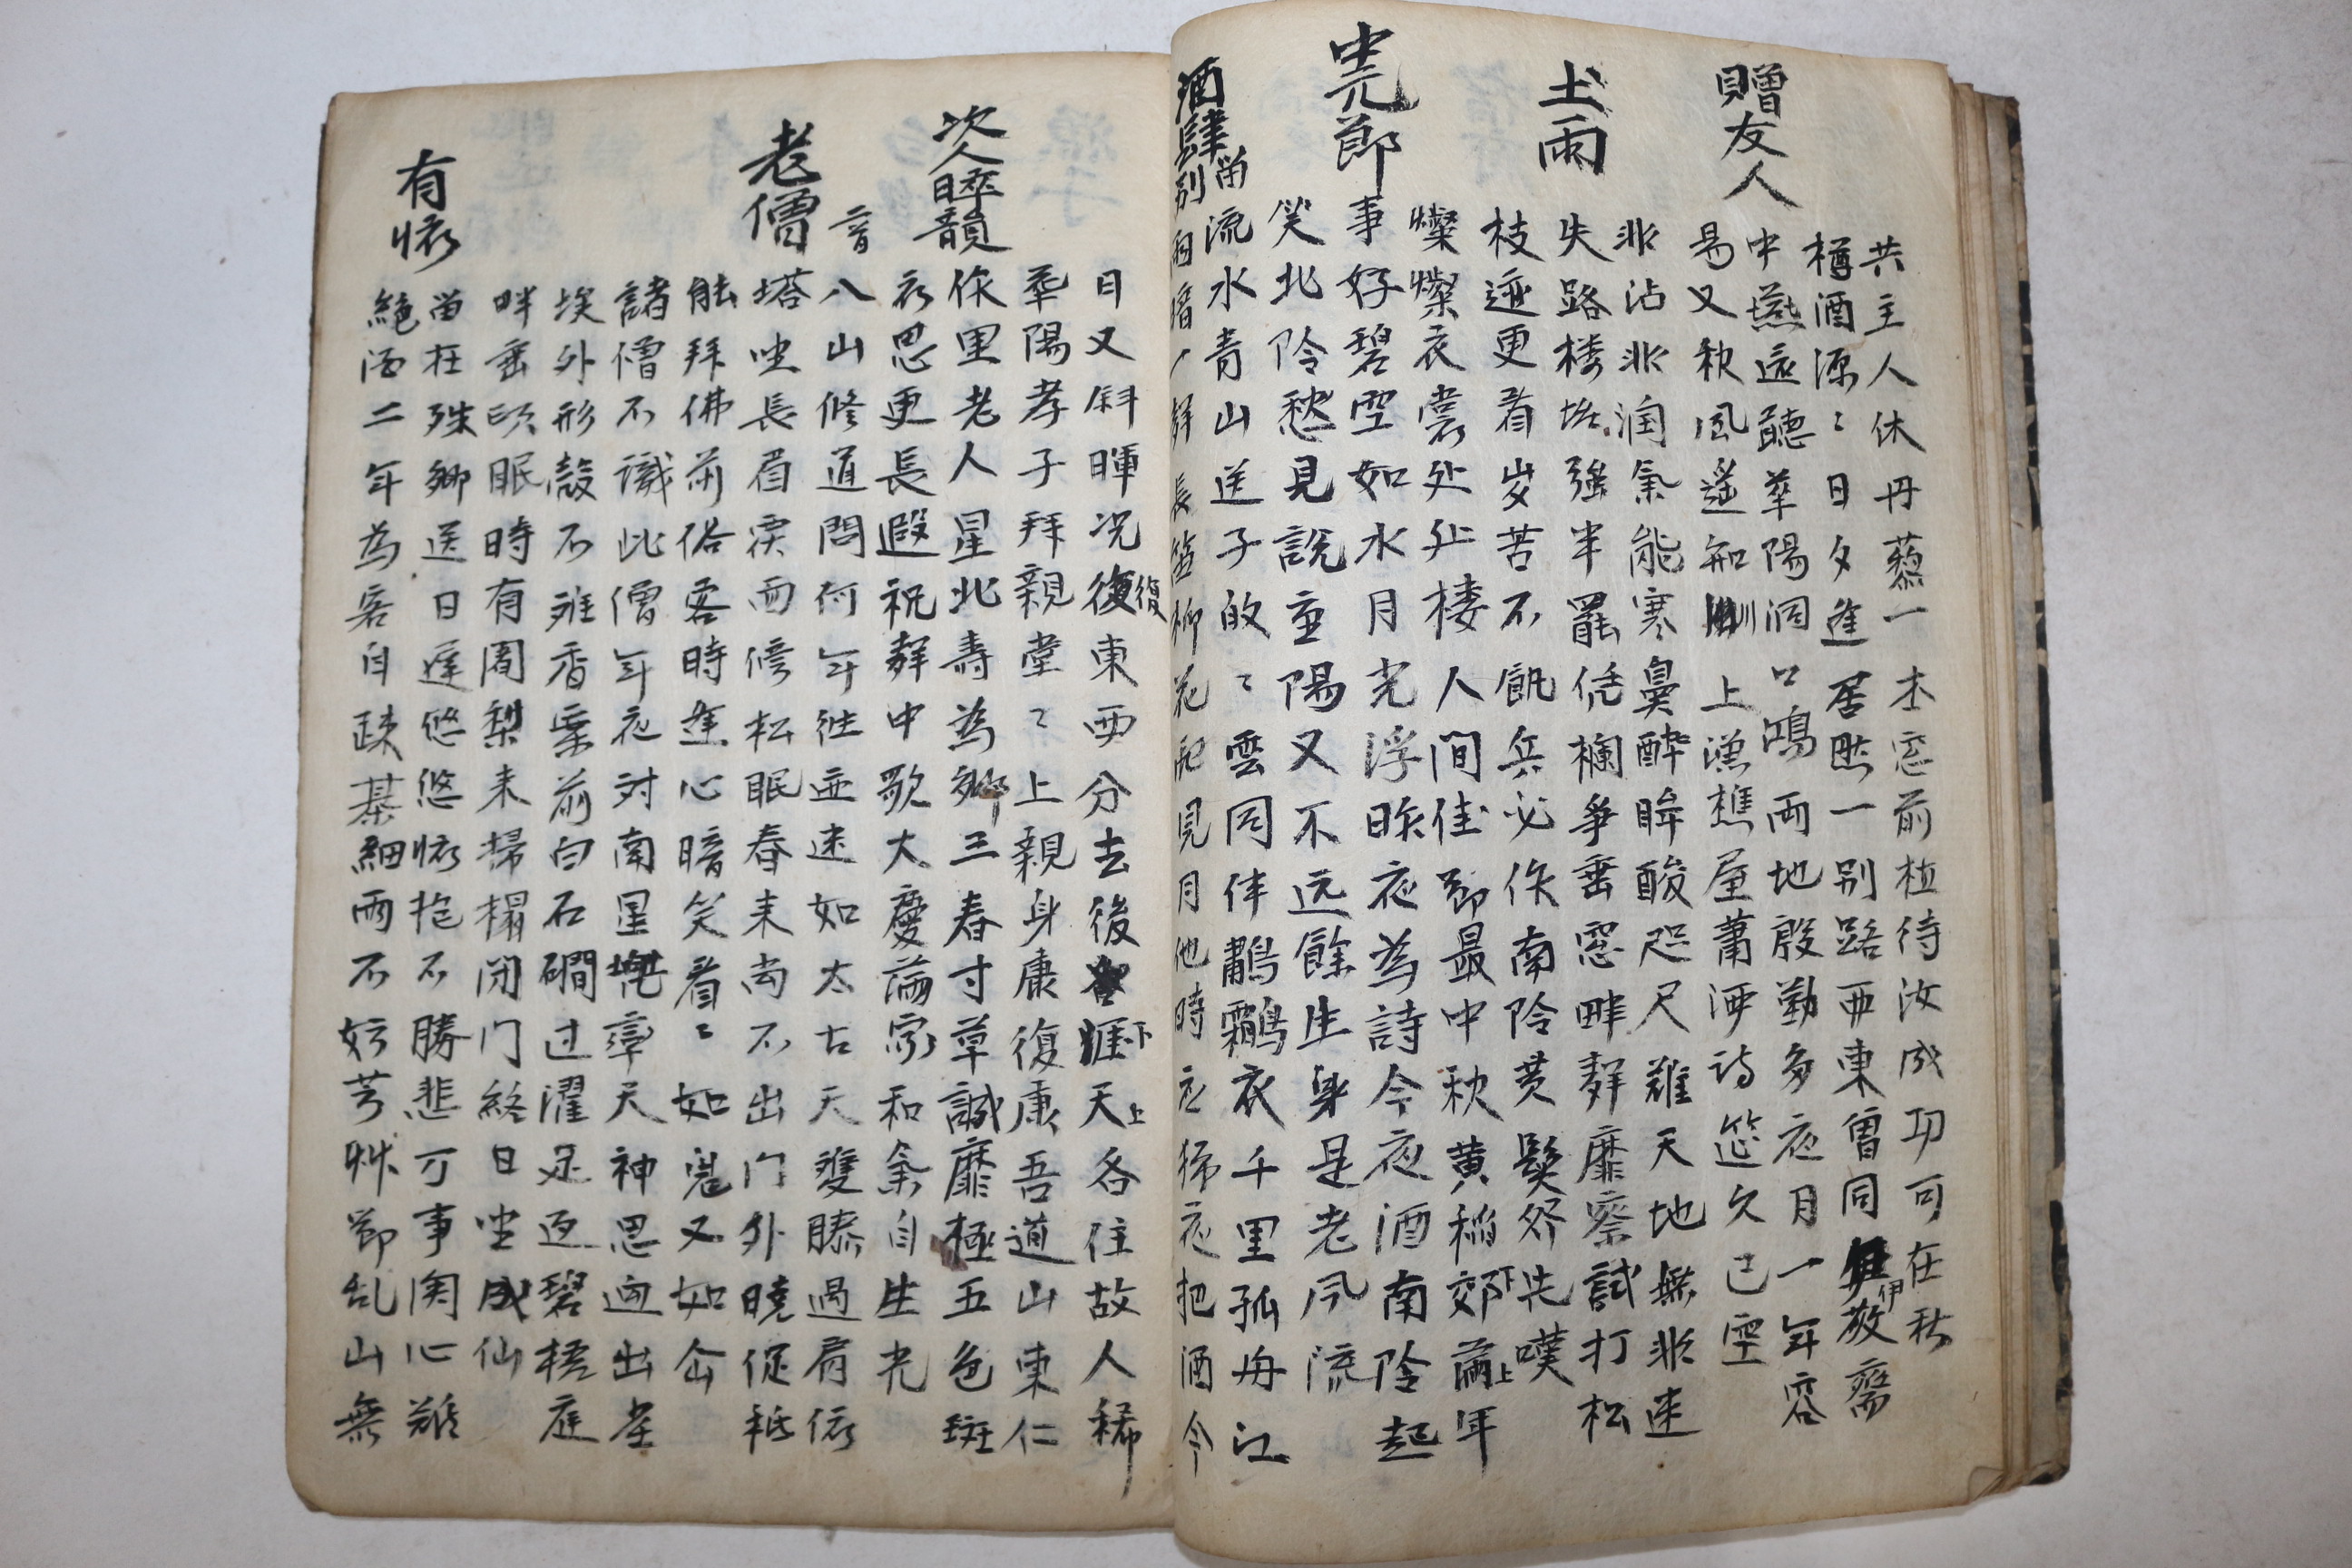 共主人休丹藜一本窓前植待汝成功可在秋
贈友人
樽酒源〻日夕進居然一別路西東曾同伊敬齋
中燕遠聽華陽洞口鴻兩地殷勤多夜月一年容
易又秋風遥知上漁樵屋蕭洒詩筵久已空
土雨
非沾非润氣能寒鼻酔眸酸咫尺難天地無非迷
失路楼坮強半罷凭欄爭垂窓畔聲靡察試打松
枝迹更看岁苦不飢兵必作南阾黄髮祭先嘆
中元節
燦燦衣裳处处楼人間佳節最中秋黄稲郊下滿上年
事好碧空如水月光浮昨夜為詩今夜酒南阾起
笑北阾愁見説重陽又不远餘生身是老风流
酒肆留别
流水青山送子的〻雲同伴鸘衣千里孤舟江
雨暗一聲長笛柳花見月他時夜把酒今
日又斜暉况復東西分去後涯下天上各住故人稀
復
次人晬韻
華陽孝子拜親堂〻上親身康復康吾道山東仁
作里老人星北壽為鄉三春寸草誠靡極五色斑
衣思更長遐祝聲中歌大慶滿家和氣自生光
老僧
音
八山修道問何年徃迹迷如太古天雙膝過肩依
塔坐長眉戻面倚松眠春来尚不出门外曉促秪
能拜佛前俗客時逢心暗笑看〻如鬼又如仚
諸僧不識此僧年夜対南星天神思迥出尘
埃外形殼不雅香案前白石磵过濯足返碧梧庭
畔垂頭眠時有闍梨来掃榻閉门終日坐成仙
有懷
留在殊鄉送日遲悠悠懷抱不勝悲丁事関心難
絶酒二年為客自疎棊細雨不妨芳艸節乱山無